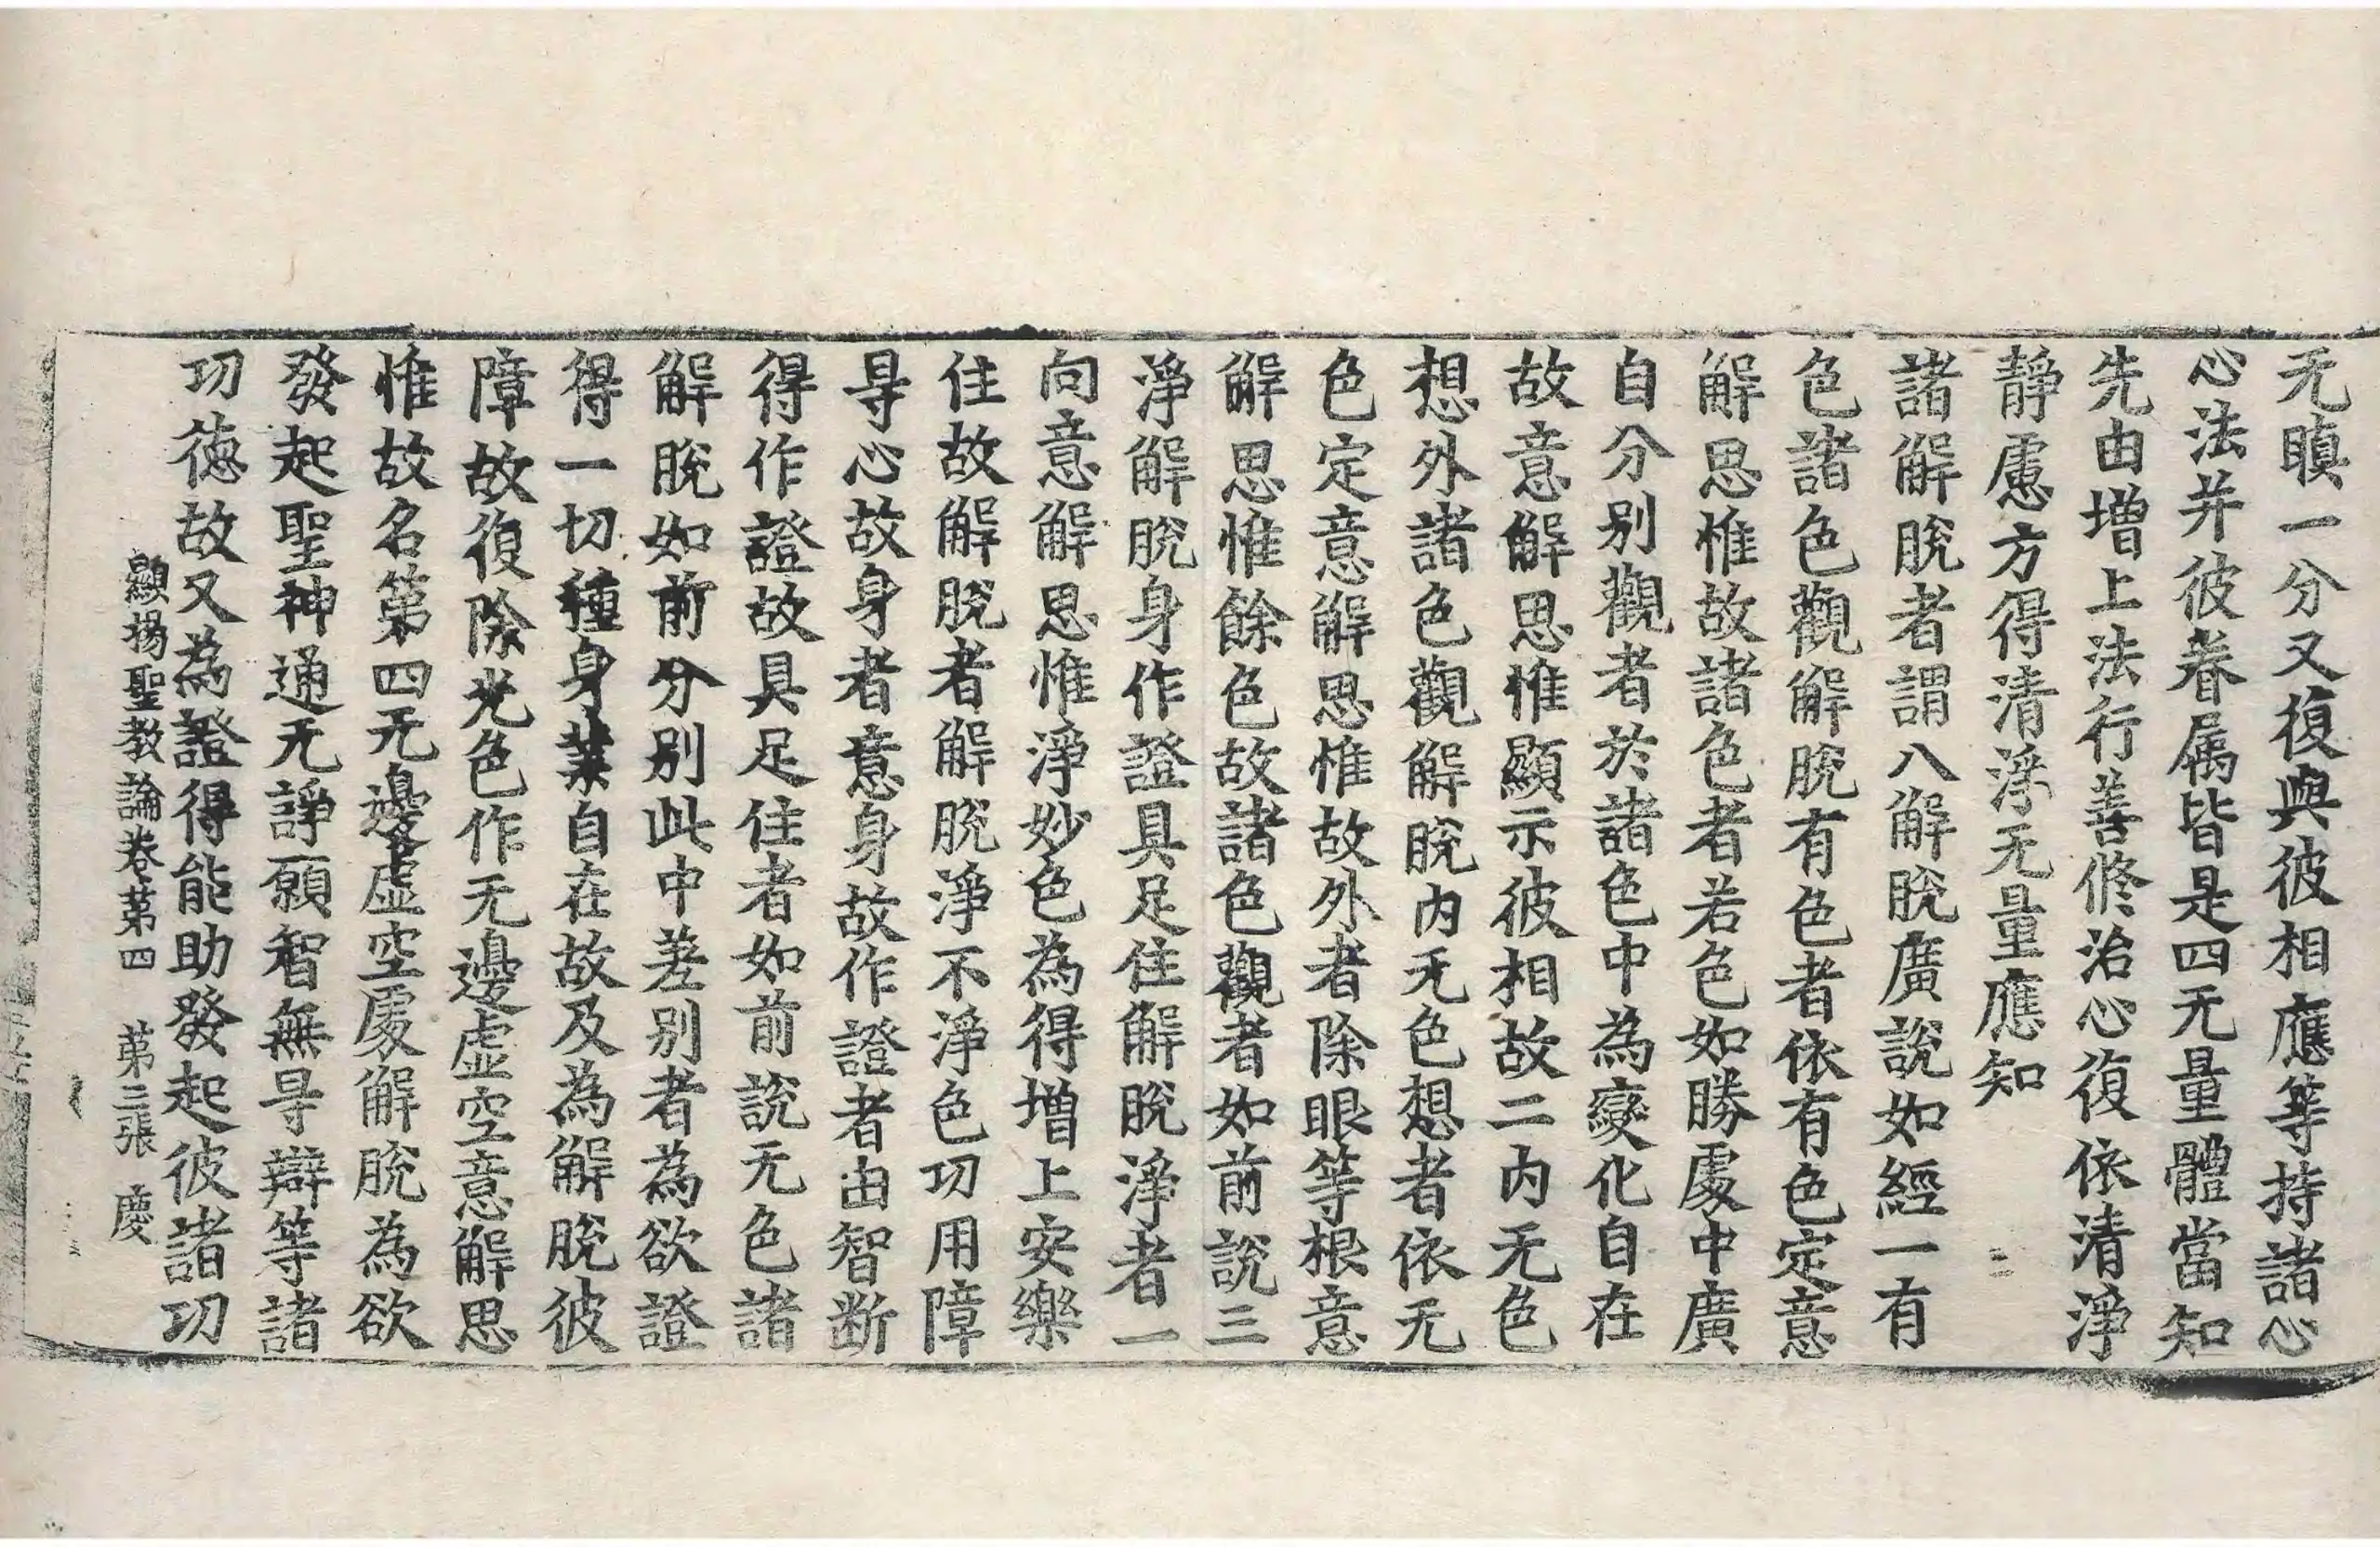 无瞋一分又復與彼相應等持諸心
心法并彼眷属皆是四无量體當知
先由增上法行善修治心復依清淨
靜慮方得清淨无量應知
諸解脫者謂八解脫廣說如經一有
色諸色觀解脫有色者依有色定意
解思惟故諸色者若色如勝處中廣
自分別觀者於諸色中為變化自在
故意解思惟顯示彼相故二內无色
想外諸色觀解脫內无色想者依无
色定意解思惟故外者除眼等根意
解思惟餘色故諸色觀者如前說三
淨解脫身作證具足住解脫淨者一
向意解思惟淨妙色為得增上安樂
住故解脫者解脫淨不淨色功用障
㝵心故身者意身故作證者由智断
得作證故具足住者如前說无色諸
解脫如前分別此中差別者為欲證
得一切種身業自在故及為解脫彼
障故復除光色作无邊虛空意解思
惟故名第四无邊虛空處解脫為欲
發起聖神通无諍願智無㝵辯等諸
功德故又為證得能助發起彼諸功
顯揚聖教論卷苐四 苐三張 慶